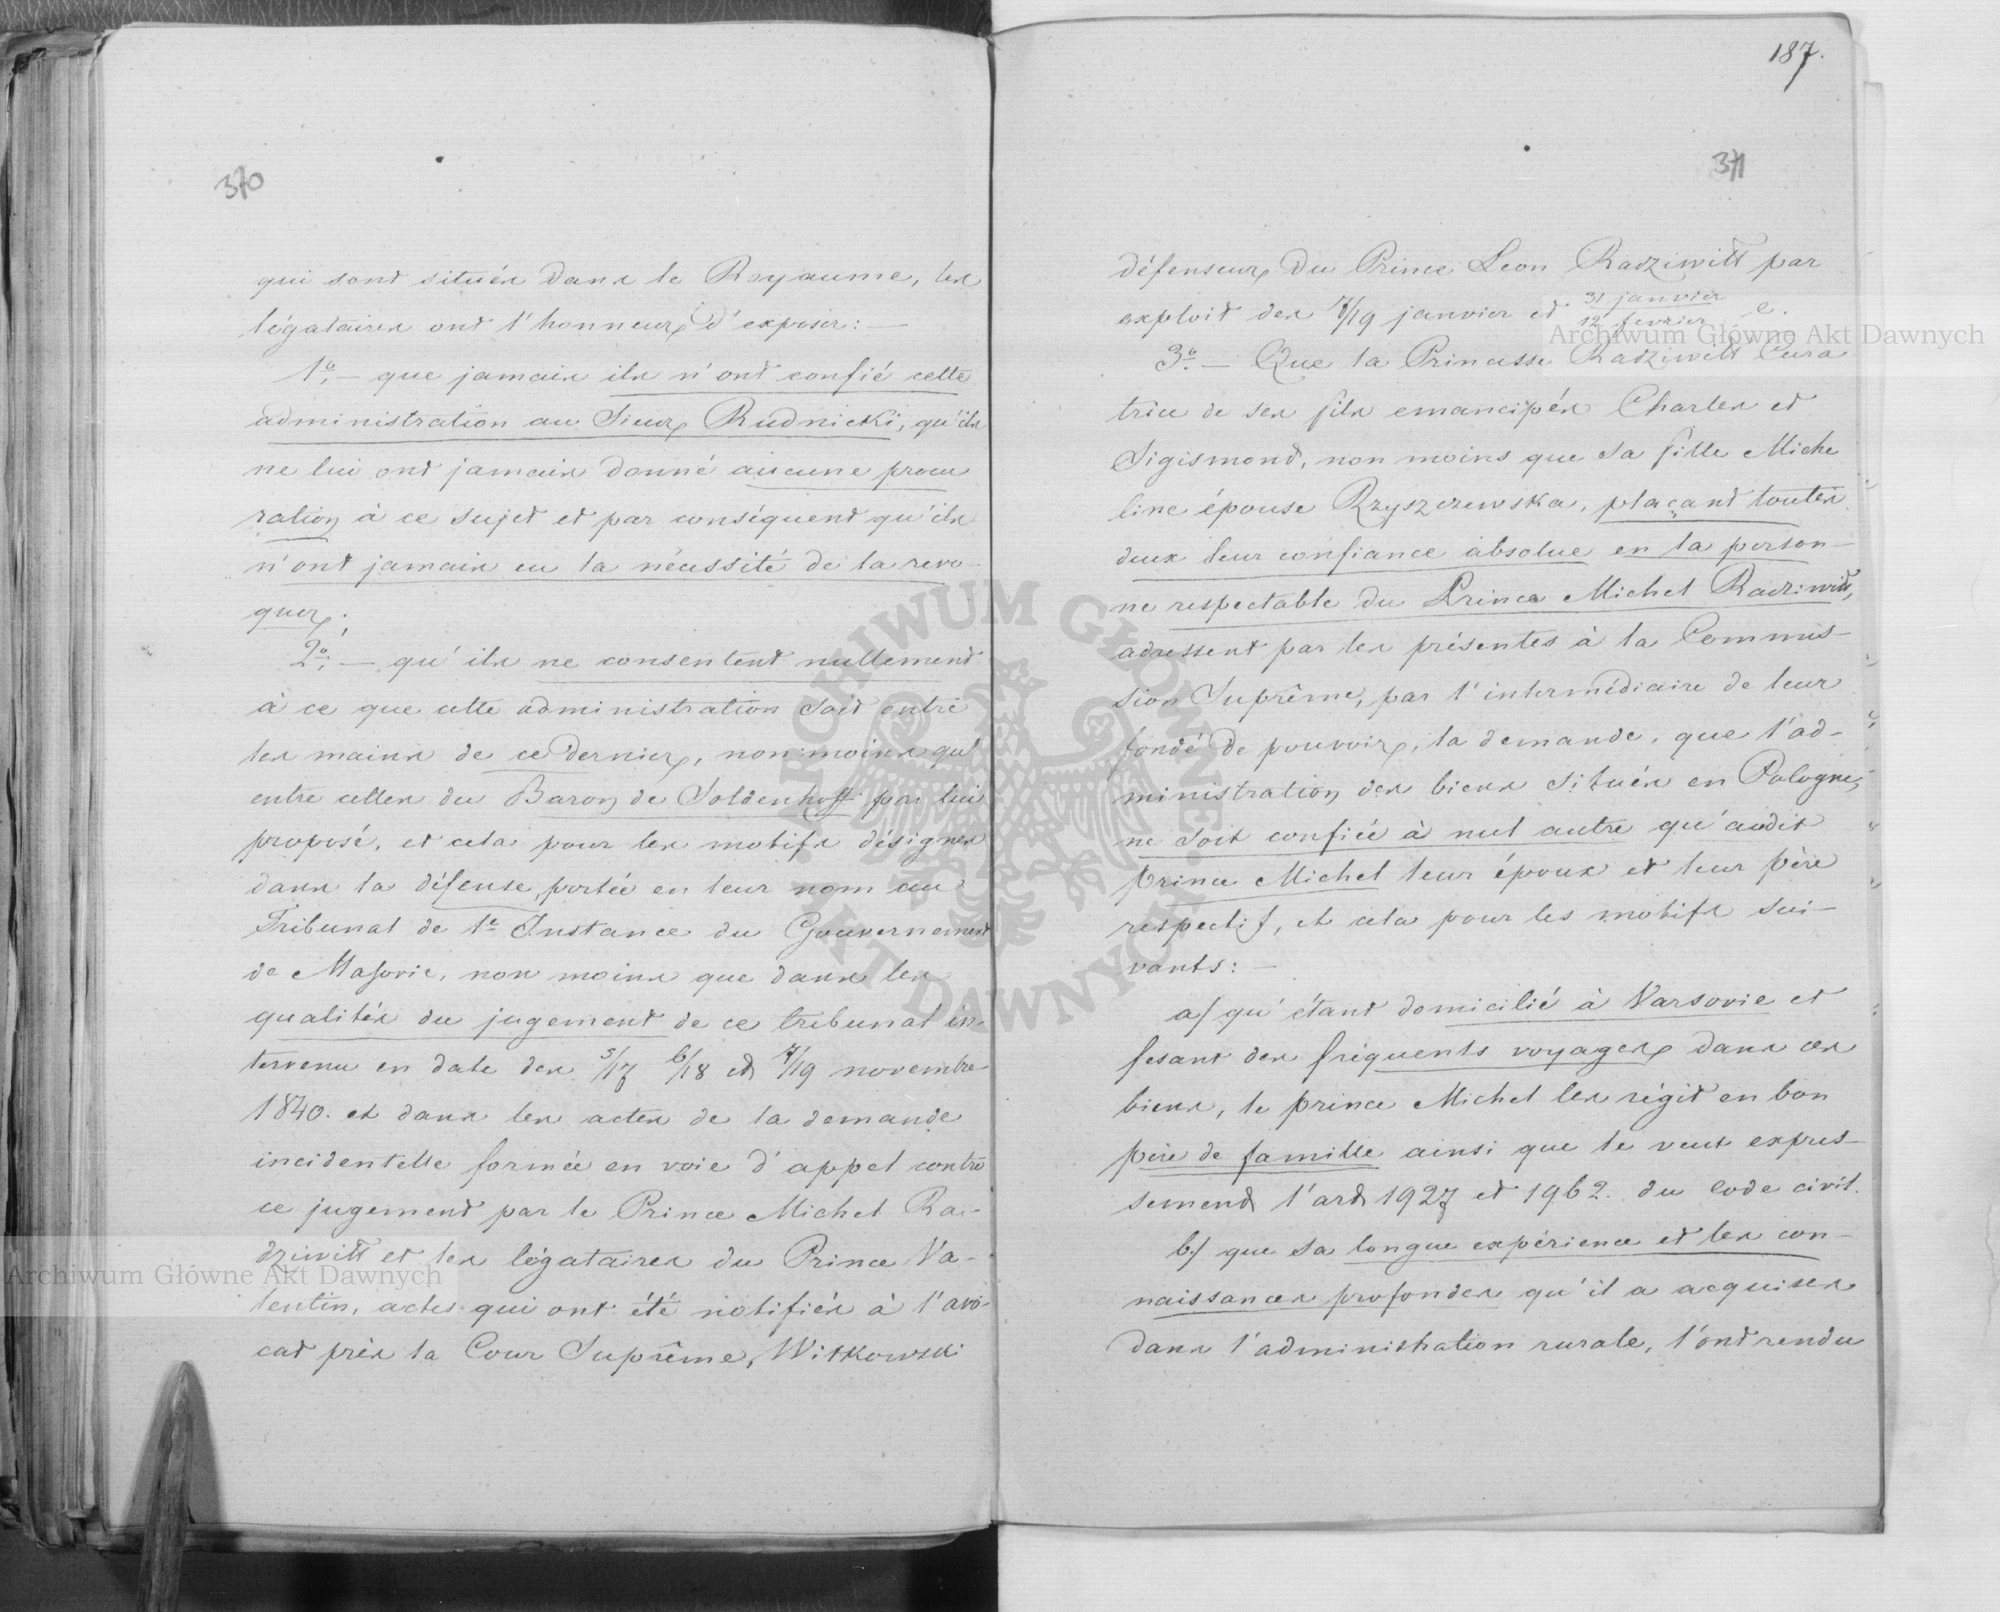 370
qui sont situés dans le Royaume, les
légataires ont l'honneur d'exposer: —
1º, — que jamais ils n'ont confié cette
administration au Sieur Rudnicki, qu'ils
ne lui ont jamais donné aucune procu
ration à ce sujet et par conséquent qu'ils
n'ont jamais eu la nécessité de la revo-
quer;
2º, — qu'ils ne consentent nullement
à ce que cette administration soit entre
les mains de ce dernier, non moins qu'
entre celles du Baron de Soldenhoff par lui
proposé, et cela pour les motifs désignés
dans la défense, portée en leur nom au
Tribunal de 1e Instance du Gouvernement
de Masovie, non moins que dans les
qualités du jugement de ce tribunal in-
tervenu en date des 5/17 6/18 et 7/19 novembre
1840. et dans les actes de la demande
incidentelle formée en voie d'appel contre
ce jugement par le Prince Michel Ra-
dziwill et les légataires du Prince Va-
lentin, actes qui ont été notifiés à l'avo-
cat près la Cour Suprême, Witkowski
187.
371
défenseur du Prince Leon Radziwill par
exploit des 7/19 janvier et 31 janvier / 12 fevrier c.
3º — Que la Princesse Radziwill Cura
trice de ses fils emancipés Charles et
Sigismond, non moins que sa fille Miche
line épouse Rzyszczewska, plaçant toutes
deux leur confiance absolue en la person-
ne respectable du Prince Michel Radziwill,
adressent par les présentes à la Commis-
sion Suprême, par l'intermédiaire de leur
fondé de pouvoir, la demande, que l'ad-
ministration des biens situés en Pologne,
ne soit confiée à nul autre qu'audit
prince Michel leur époux et leur père
respectif, et cela pour les motifs sui-
vants: —
a/ qu'étant domicilié à Varsovie et
fesant des fréquents voyages dans ces
biens, le prince Michel les régit en bon
père de famille ainsi que le veut expres-
sement l'art 1927 et 1962. du code civil.
b/ que sa longue expérience et les con-
naissances profondes qu'il a acquises
dans l'administration rurale, l'ont rendu
Archiwum Główne Akt Dawnych
Archiwum Główne Akt Dawnych
ARCHIWUM GŁÓWNE AKT DAWNYCH